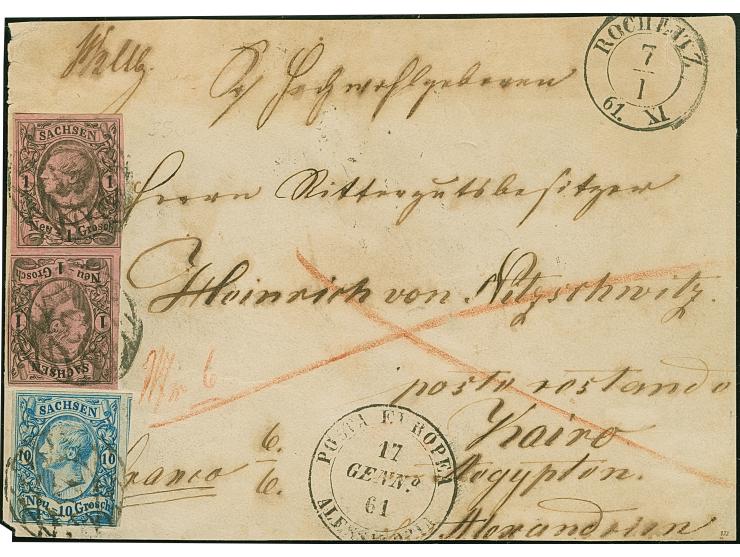 ROCHLITZ
7
1
61. XI
Sr Hochwohlgeboren
SACHSEN
1 1
Neu 1 Grosch
Herrn Rittergutsbesitzer
Neu - 1 Grosch
1 1
SACHSEN
Heinrich von Nitzschwitz.
6
poste restande
SACHSEN
10 10
Neu 10 Grosch
franco
6.
6.
POSTA EUROPEA
17
GENN.º
61
ALESSANDRIA
Kairo
Aegypten.
Alexandrien